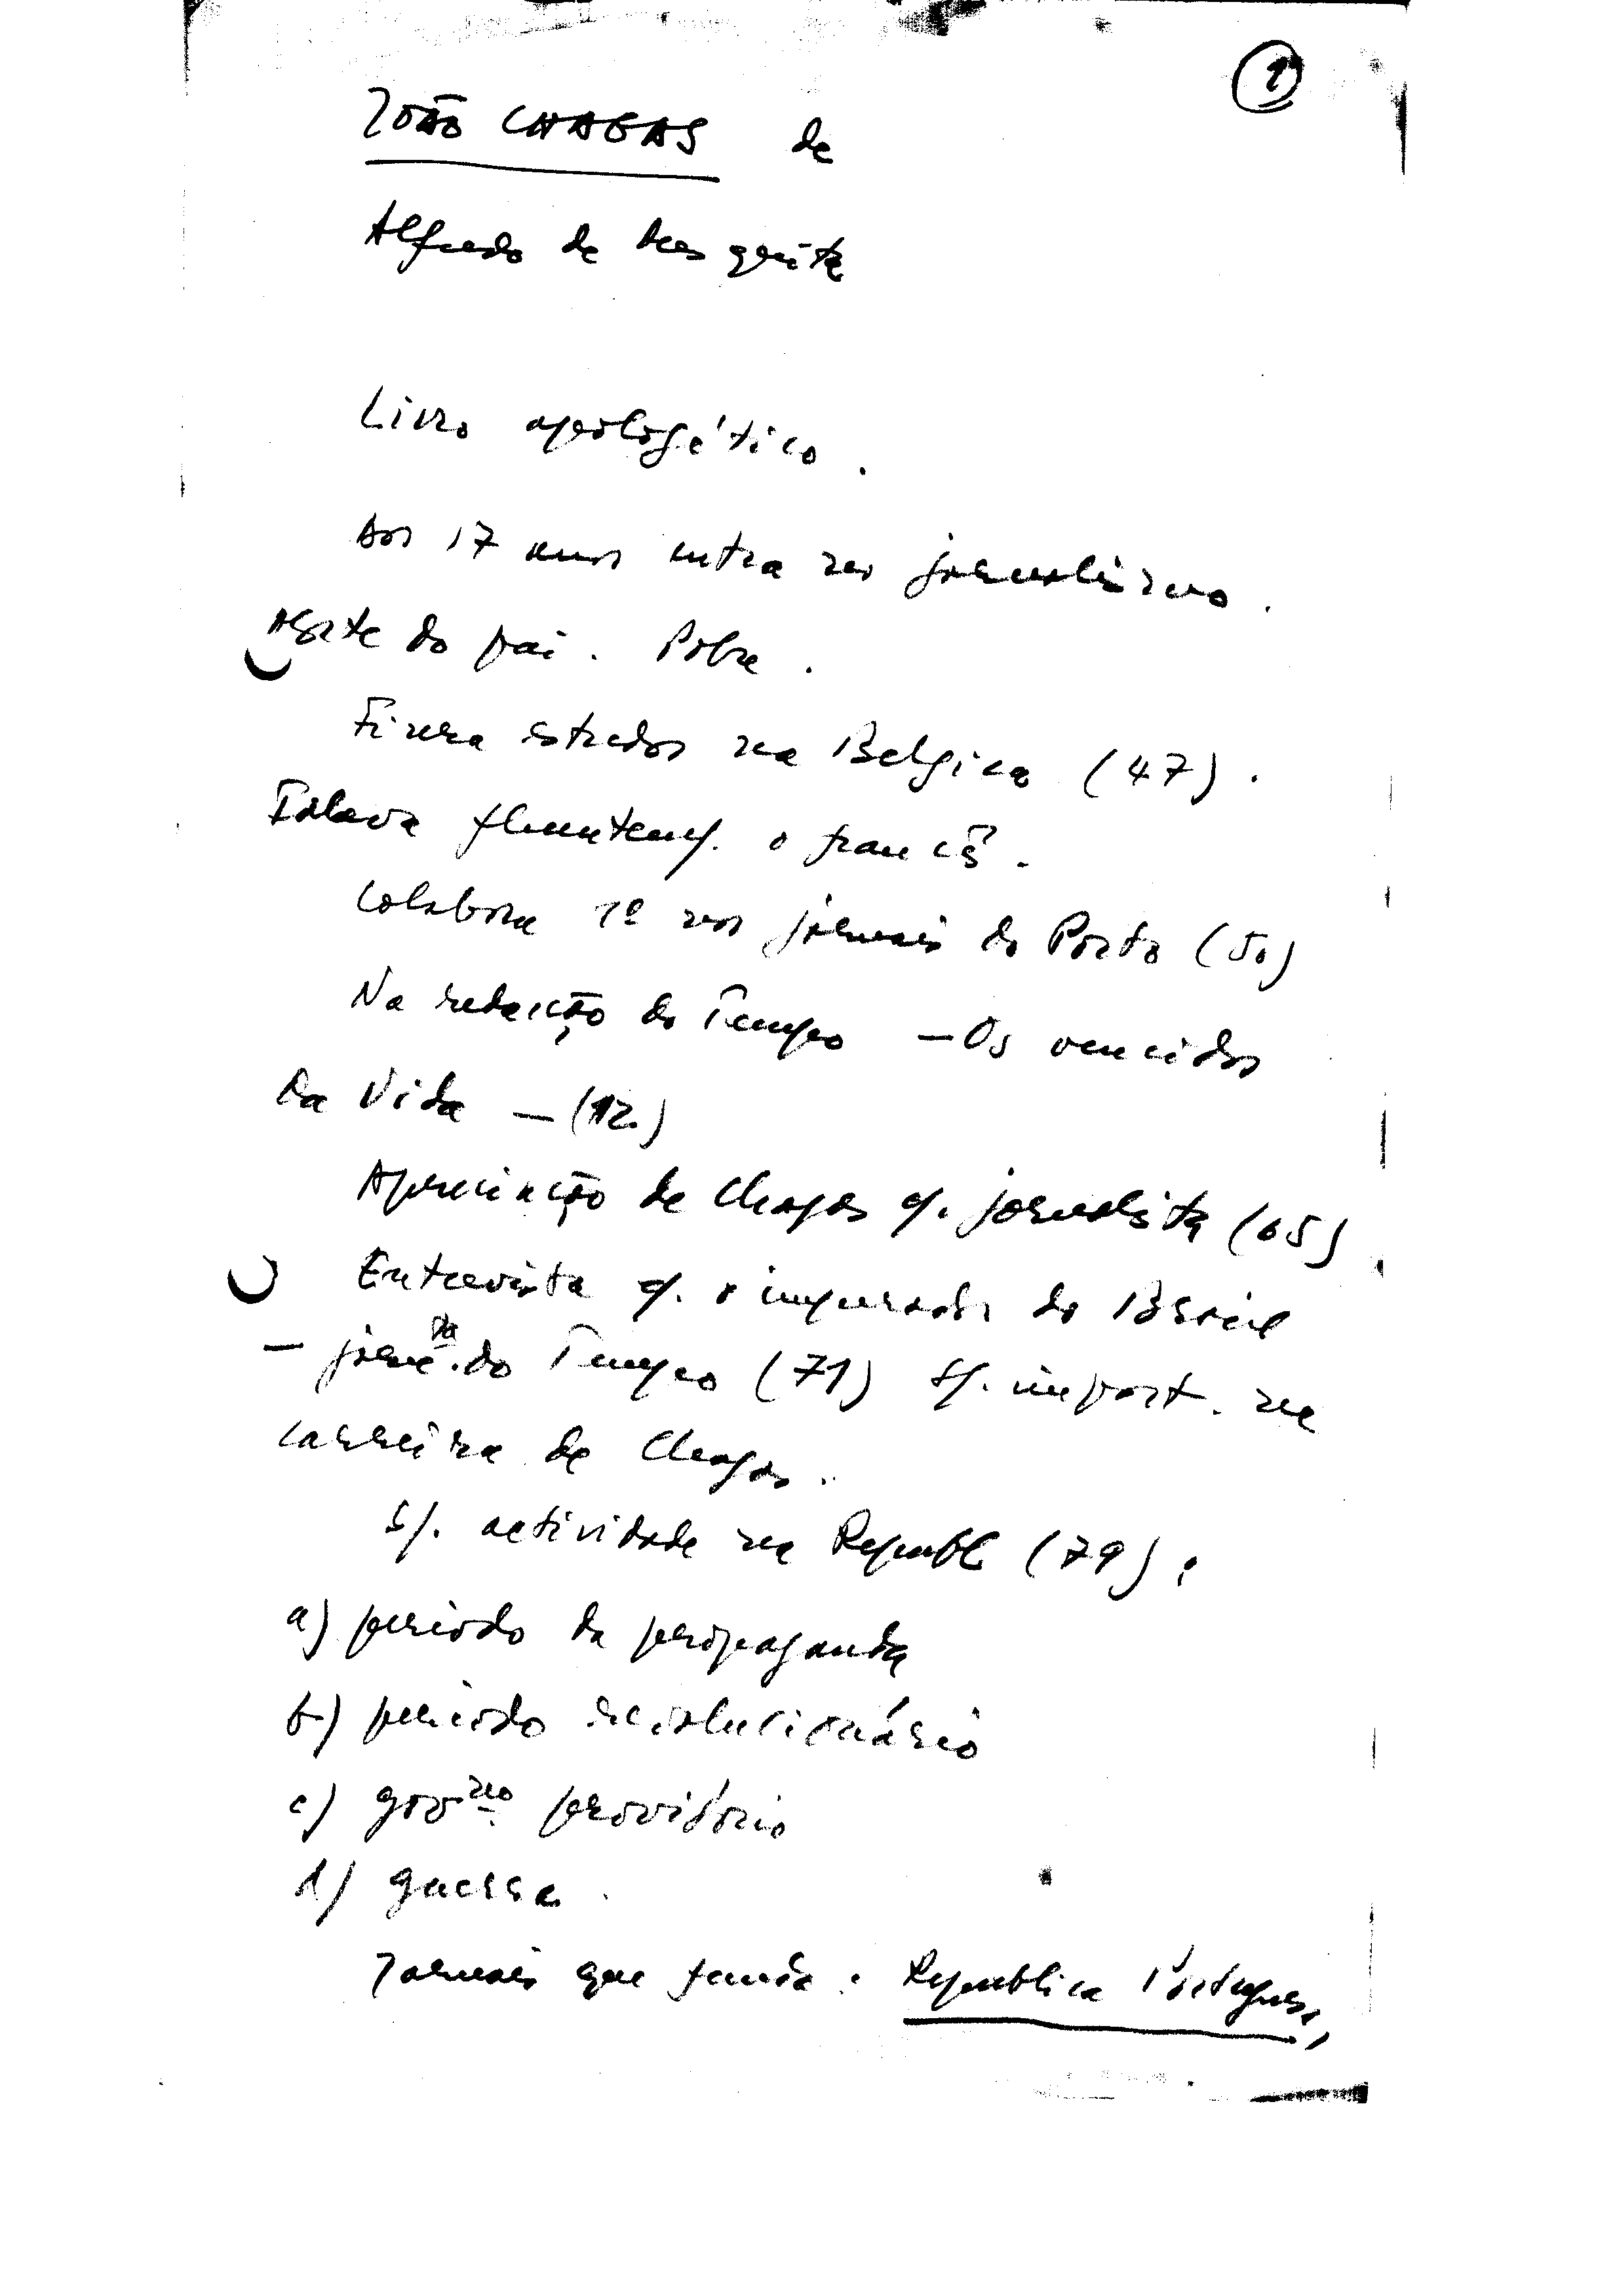 1
JOÃO CHAGAS de
Alfredo de Mesquita
Livro apologético.
Aos 17 anos entra no jornalismo.
Morte do pai. Pobre.
Fizera estudos na Belgica (47).
Falava fluentem/. o francês.
Colabora 1º nos jornais do Porto (50)
Na redacção do Tempo — Os vencidos
da Vida — (12)
Apreciação de Chagas c/. jornalista (65)
Entrevista c/. o imperador do Brasil
— jorn.ta do Tempo (71) s/. import. na
carreira de Chagas.
S/. actividade na Republ (79):
a) periodo da propaganda
b) periodo revolucionário
c) gov.no provisório
d) guerra.
Jornais que funda: Republica Portuguesa,